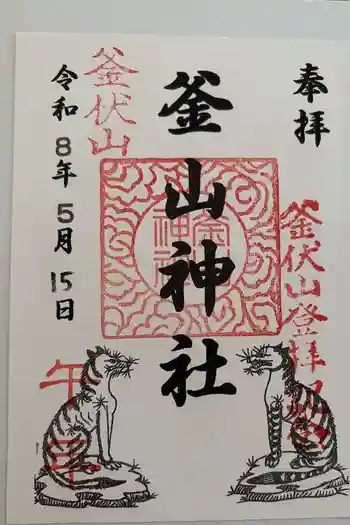 奉拝
釜伏山登拝
釜山神社
釜伏山
令和8年5月15日
午年